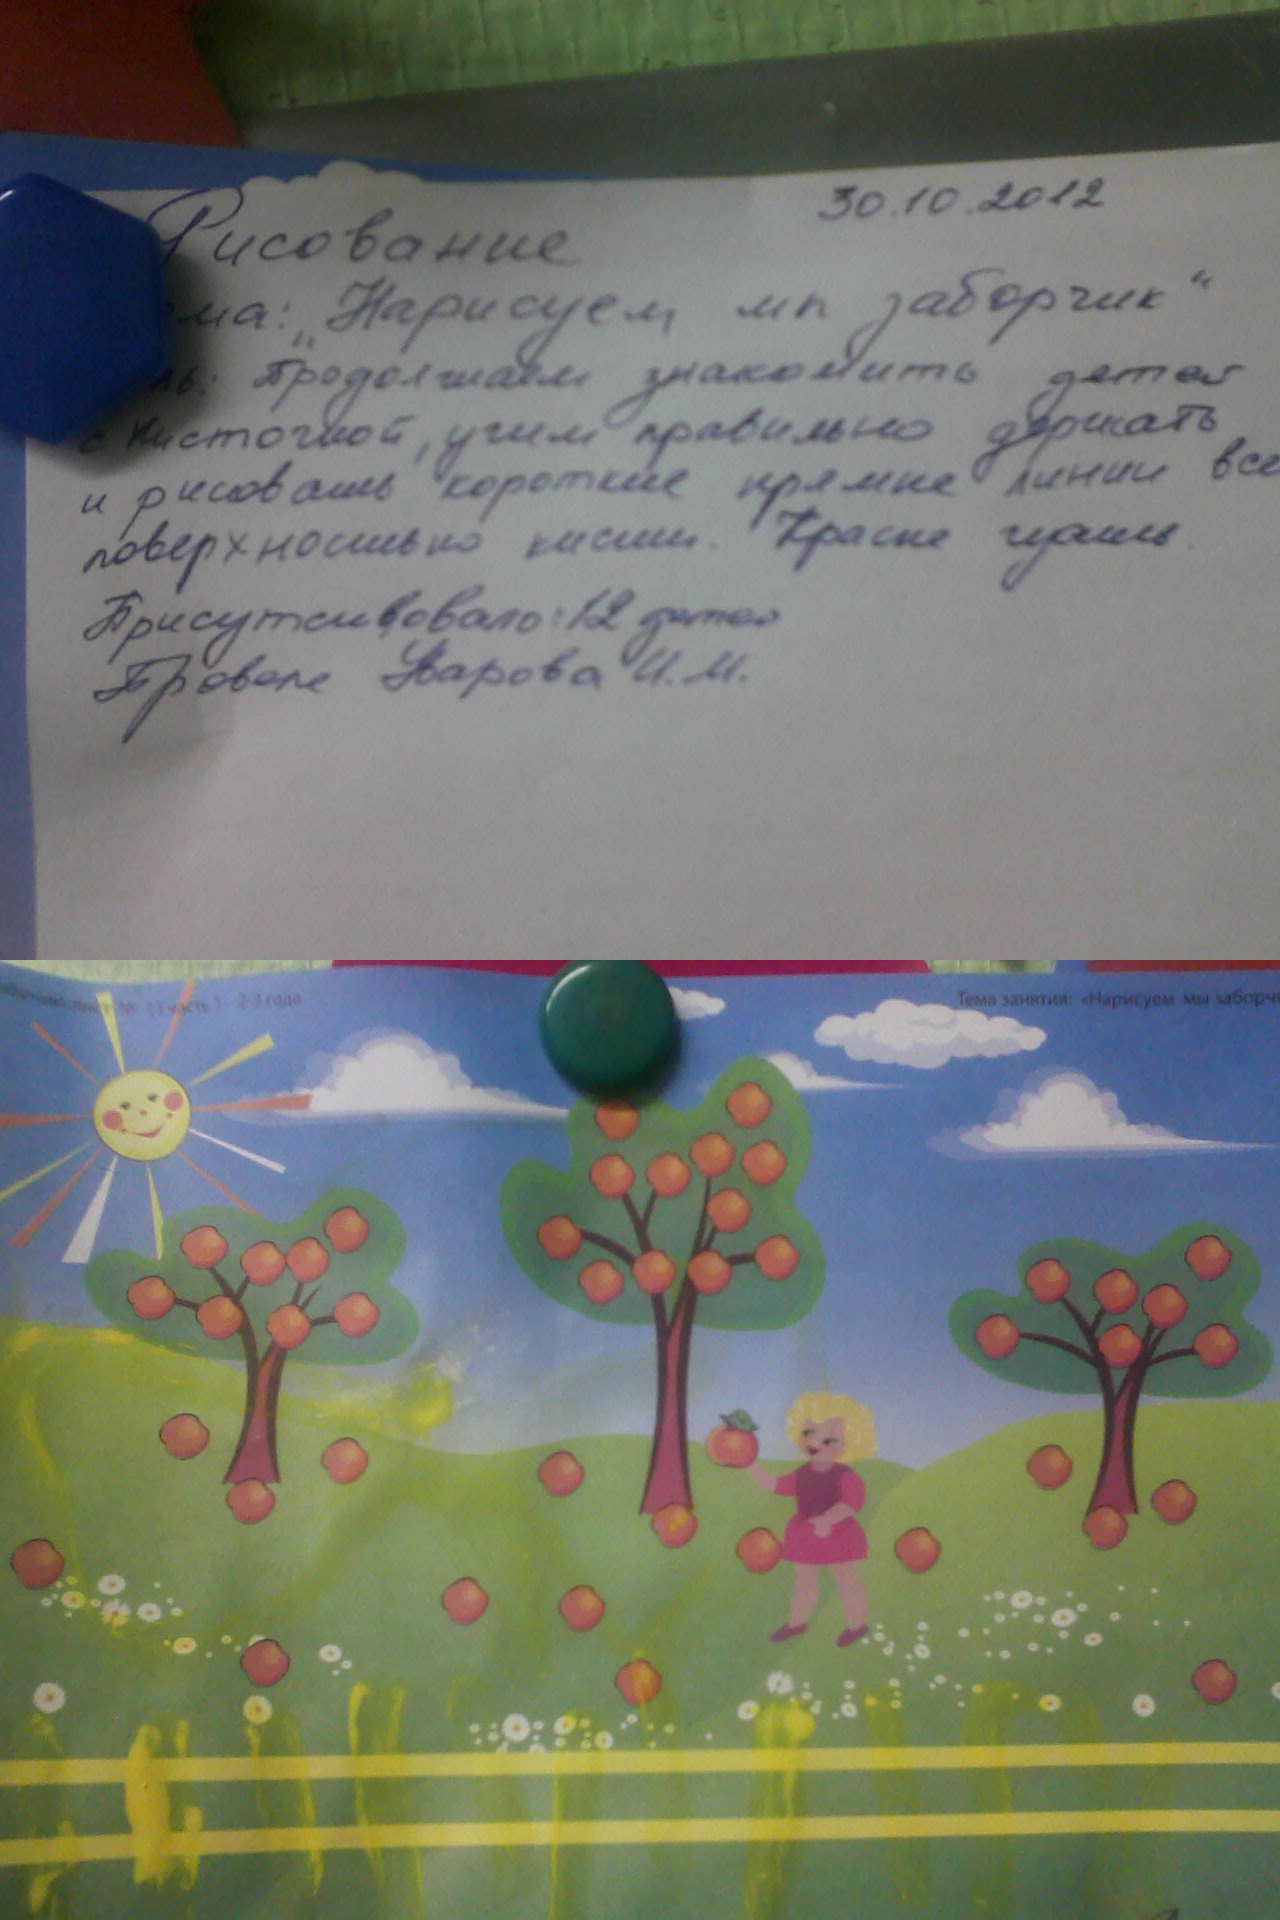 Рисование 30.10.2012
ма: „Нарисуем мы заборчик“
ль: Продолжаем знакомить детей
с кисточкой, учим правильно держать
и рисовать короткие прямые линии все
поверхностью кисти. Краски гуашь.
Присутствовало: 12 детей
Провела Уварова И.М.
лист № 11 часть 1 2-3 года
Тема занятия: «Нарисуем мы заборч